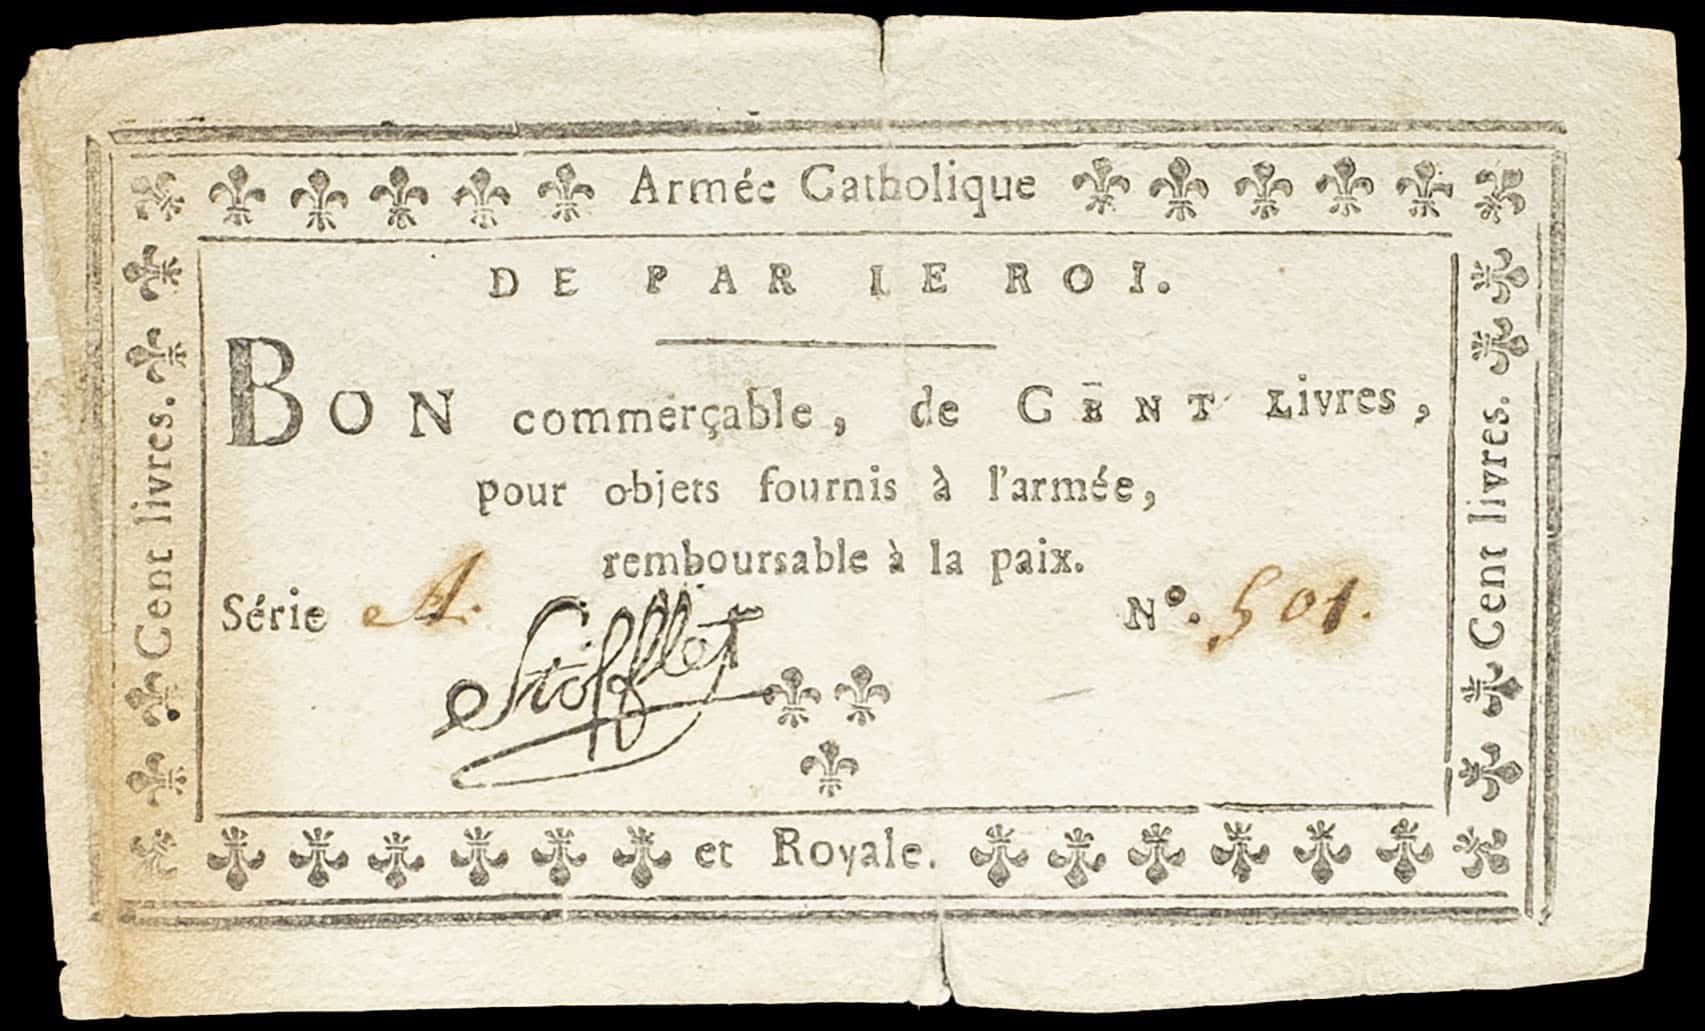 Armée Catholique
DE PAR LE ROI.
BON commerçable, de CENT Livres,
pour objets fournis à l'armée,
remboursable à la paix.
Série A. N°. 501.
Stofflet
et Royale.
Cent livres.
Cent livres.